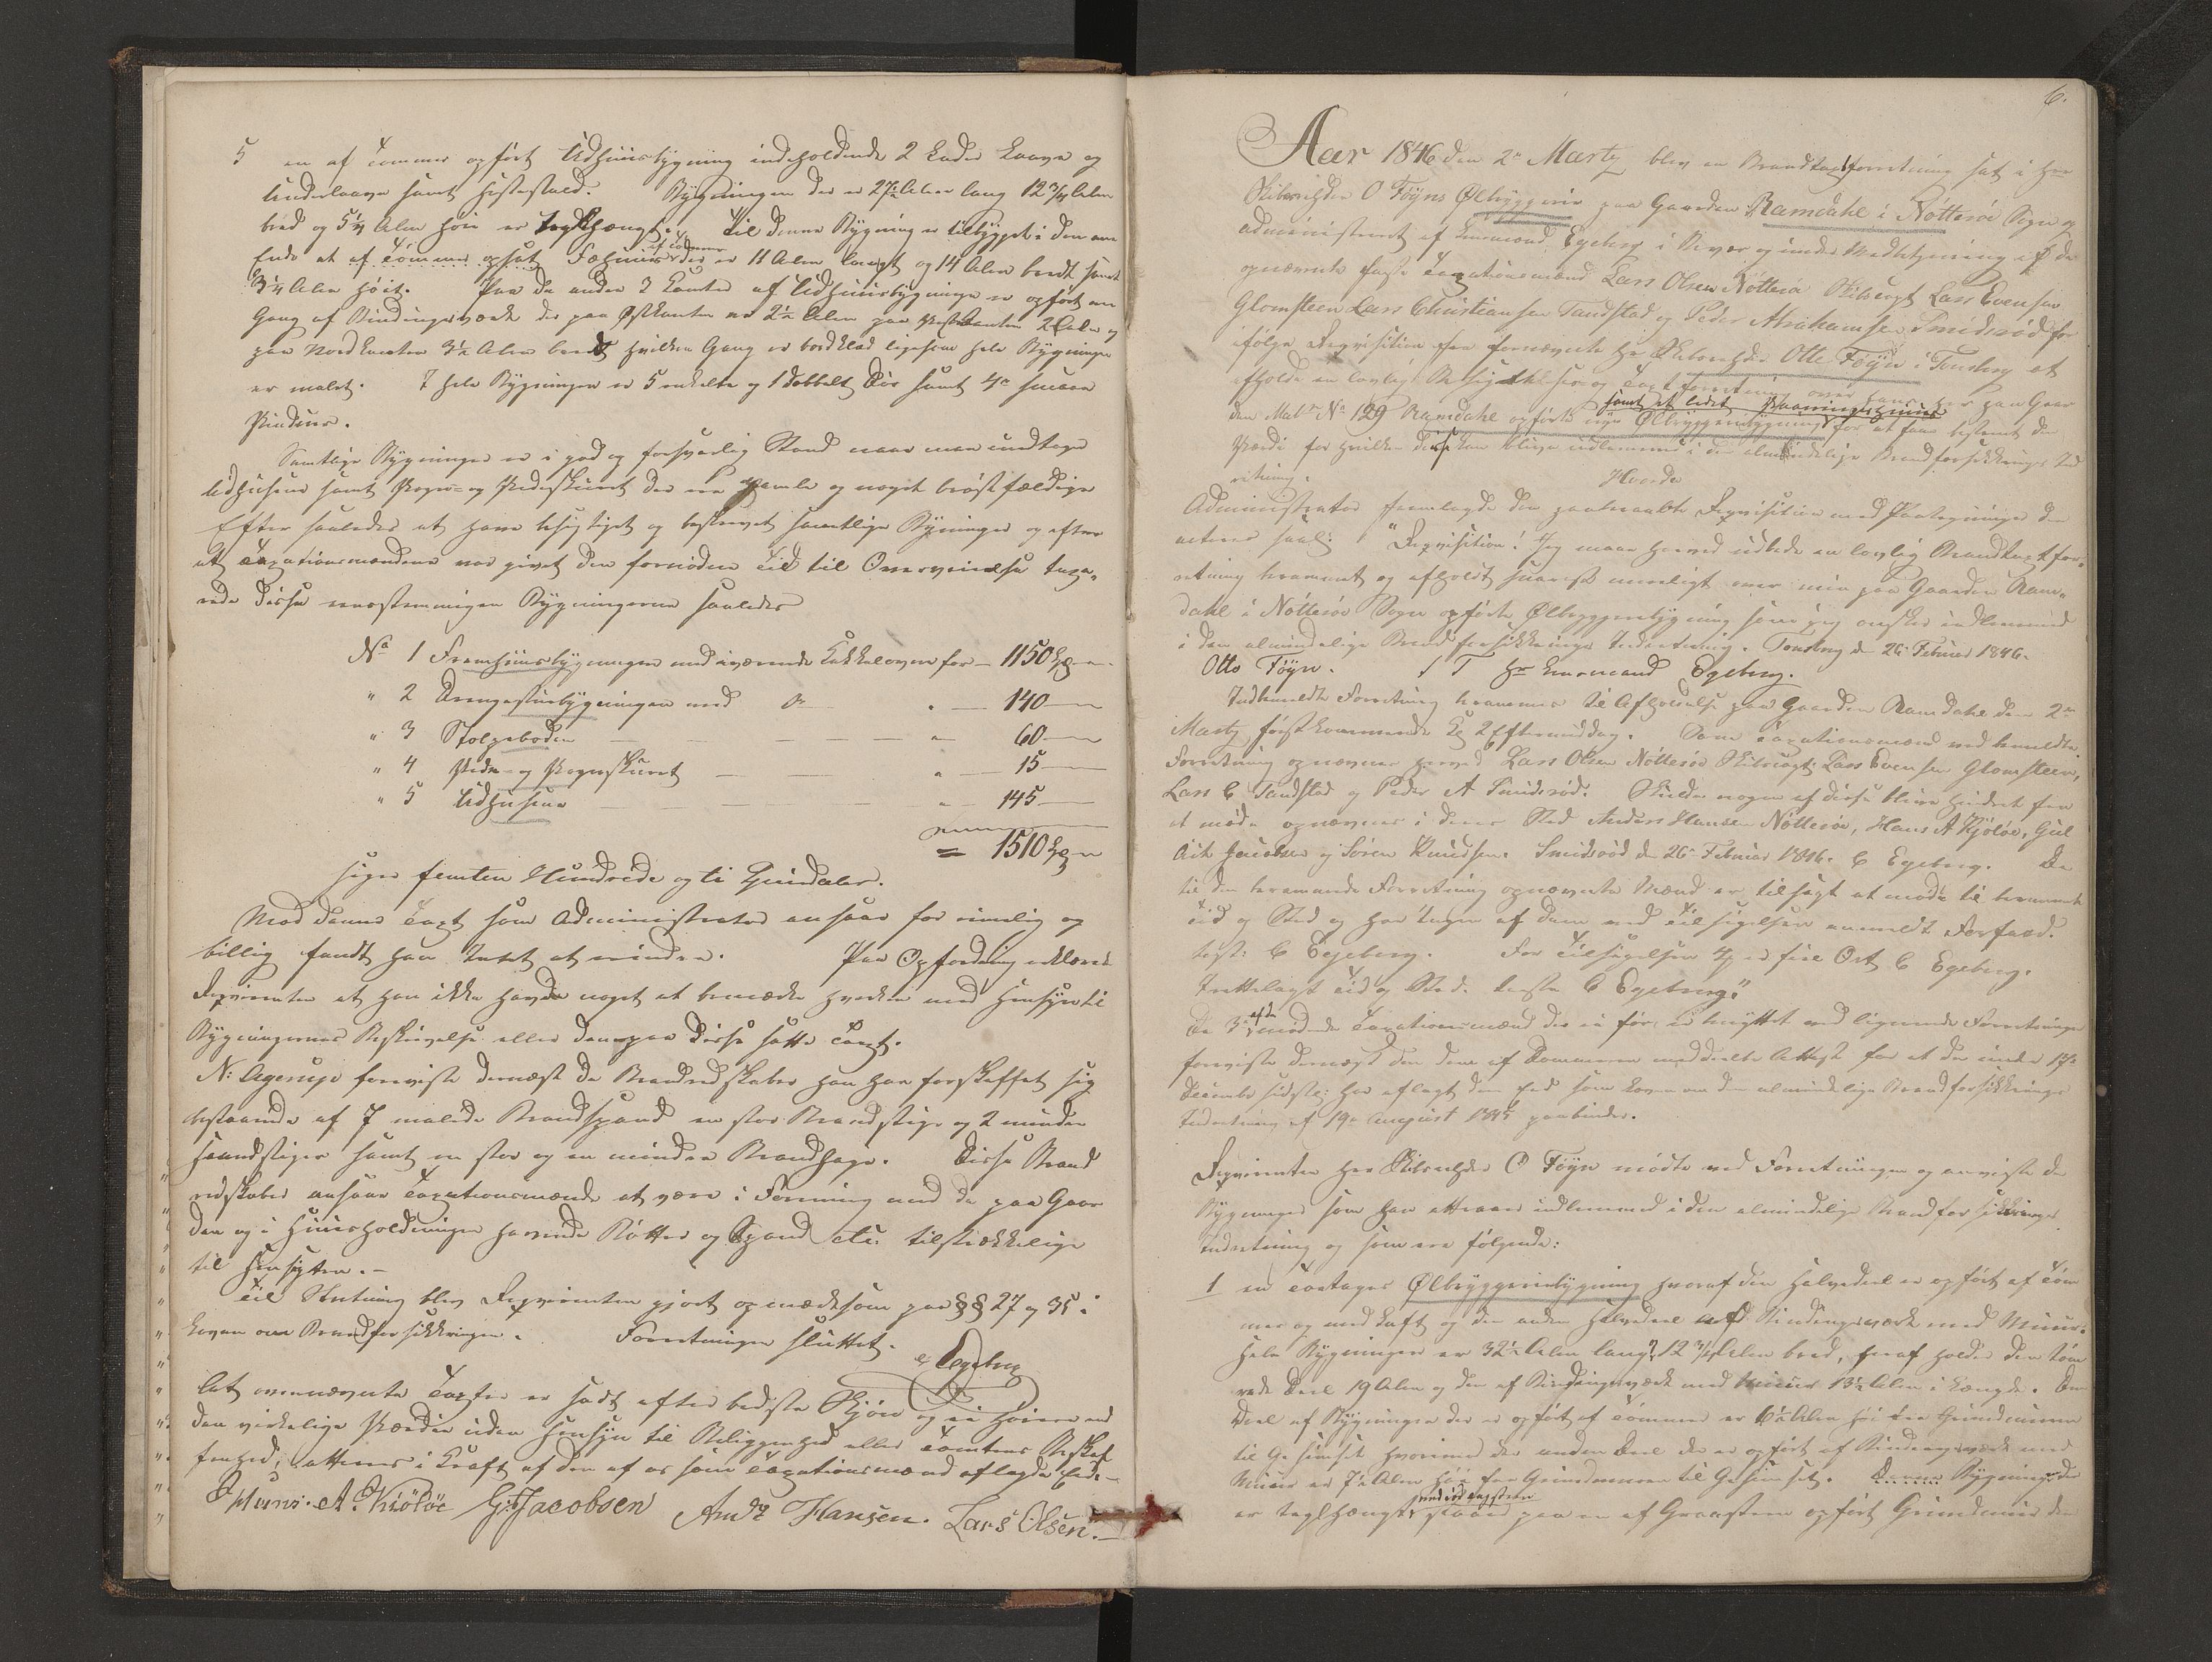 5 en af Tømmer opført Udhuusbygning indeholdende 2 Lader Laave og
Underlaave samt Hestestald. Bygningen der er 27½ Alen lang 12¾ Alen
bred og 5¼ Alen høi er teglhængt. Til denne Bygning er tilbygget i den ene
Ende et af Tømmer opsat Fæhuus der er 11 Alen langt og 14 Alen bredt samt
af Tømmer
3¼ Alen høit. Paa de andre 3 Kanter af Udhuusbygningen er opført en
Gang af Bindingsværk der paa Østkanten er 2½ Alen paa Vestkanten 2 Alen og
paa Nordkanten 3½ Alen bredt hvilken Gang er bordklæd ligesom hele Bygningen
er malet. I hele Bygningen er 5 enkelte og 1 dobbelt Dør samt 4re smaae
Vinduer.
Samtlige Bygninger er i god og forsvarlig Stand naar man undtager
Udhusene samt Vogn- og Vedeskuret der ere gamle og noget brøstfældige
Efter saaledes at have besigtiget og beskrevet samtlige Bygninger og efter
at Taxationsmændene var givet den fornødne Tid til Overveielse taxe„
rede disse eenstemmigen Bygningerne saaledes
No 1 Framhuusbygningen med iværende Kakkelovne for — 1150 Spd
" 2 Drengestuebygningen med do " — 140 —
" 3 Stolpeboden — — — — " — 60 —
" 4 Vede- og Vognskuret — — " — 15 —
" 5 Udhusene — — — — " — 145 —
= 1510 Spd
siger femten Hundrede og ti Speciedaler.
Mod denne Taxt som Administrator ansaae for rimelig og
billig fandt han Intet at erindre. Paa Opfordring erklærede
Reqvirenten at han ikke havde noget at bemærke hverken med Hensyn til
Bygningernes Beskrivelse eller den paa disse satte Taxt.
N: Agerup foreviste dernæst de Brandredskaber han har forskaffet sig
bestaaende af 7 malede Brandspand en stor Brandstige og 2 mindre
Haandstiger samt en stor og en mindre Brandhage. Disse Brand
redskaber ansaae Taxationsmændene at være i Forening med de paa Gaar
den og i Huusholdningen havende Bøtter og Spand etc. tilstrækkelige
til Hensigten.—
Til Slutning blev Reqvirenten gjort opmærksom paa §§ 27 og 35 i
Loven om Brandforsikkringen. Forretningen sluttet.
C Egeberg
At ovennævnte Taxter er sadt efter bedste Skjøn og ei høiere end
den virkelige Værdie uden Hensyn til Beliggenhed eller Tomtens Beskaf
fenhed, atteres i Kraft af den af os som Taxationsmænd aflagde Eed.—
Hans. A. Kiölöe G: Jacobsen Ands Hansen. Lars Olsen.—
6.
Aar 1846 den 2n Marty blev en Brandtaxtforretning sat i Hr
Skibsrheder O Föyns Ølbryggerie paa Gaarden Ramdahl i Nötteröe Sogn og
administreret af Lensmand Egeberg i Overvær og under Medbetjening af de
opnævnte faste Taxationsmænd Lars Olsen Nötteröe Skibsvogt Lars Evensen
Glomsteen Lars Christiansen Tandstad og Peder Abrahamsen Smidsröd for
ifølge Reqvisition fra fornævnte Hr Skibsrheder Otto Föyn i Tønsberg at
afholde en lovlig Besigtelses og Taxtforretning over hans her paa Gaar
samt et lidet Vaaningshuus
den Matr No 129 Ramdahl opførte nye Ølbryggeriebygning for at faae bestemt den
Værdi for hvilken disse kan blive indlemmede i den almindelige Brandforsikkrings Ind
retning.
Hvorda
Administrator fremlagde den paaberaabte Reqvisition med Paategninger der
acteres saal: "Reqvisition! Jeg maae herved udbede en lovlig Brandtaxtfor„
retning berammet og afholdt snarest mueligt over min paa Gaarden Ram„
dahl i Nötteröe Sogn opførte Ølbryggeriebygning som jeg ønsker indlemmed
i den almindelige Brandforsikkrings Indretning. Tønsberg d 26 Februar 1846.
Otto Föyn. S T Hr Lensmand Egeberg.
Indmeldte Forretning berammes til Afholdelse paa Gaarden Ramdahl den 2n
Marty førstkommende Kl 2 Eftermiddag. Som Taxationsmænd ved bemeldte
Forretning opnævnes herved Lars Olsen Nötteröe Skibsvogt Lars Evensen Glomsteen,
Lars C Tandstad og Peder A Smidsröd. Skulde nogen af disse blive hindret fra
at møde opnævnes i deres Sted Anders Hansen Nötteröe, Hans A Kjölöe, Gul
lich Jacobsen og Sören Knudsen. Smidsröd den 26 Februar 1846. C Egeberg. De
til den berammede Forretning opnævnte Mænd er tilsagt at møde til berammet
Tid og Sted og har Ingen af dem ved Tilsigelsen anmeldt Forfald.
test: C Egeberg. For Tilsigelsen er fire Ort C Egeberg.
Fremlagt Tid og Sted. testr C Egeberg."
De 3de mødende Taxationsmænd der ei før er benyttet ved lignende Forretninger
foreviste dernæst den dem af Dommeren meddeelte Attest for at de under
December sidste: har aflagt den Eed som Loven om den almindelige Brandforsikkrings
Indretning af 19n August 1845 paabinder.
Reqvirenten Herr Skibsrheder O Föyn mødte ved Forretningen og anviste de
Bygninger som han attraaer indlemmed i den almindelige Brandforsikkrings
Indretning og som ere følgende:
1 en Toetages Ølbryggeriebygning hvoraf den halve Deel er opført af Tøm
mer og med Luft og den anden halve Deel af Bindingsværk med Muur.
Hele Bygningen er 32½ Alen lang 12¾ Alen bred, heraf holder den tøm
rede Deel 19 Alen og den af Bindingsværk med Muur 13½ Alen i Længde. Den
Deel af Bygningen der er opført af Tømmer er 6½ Alen høi fra Grundmuren
til Gesimset hvorimod den anden Deel der er opført af Bindingsværk med
Muur er 7½ Alen høi fra Grundmuren til Gesimset. Denne Bygning der
er teglhængt staaer paa en af Graasteen opført Grundmuur der